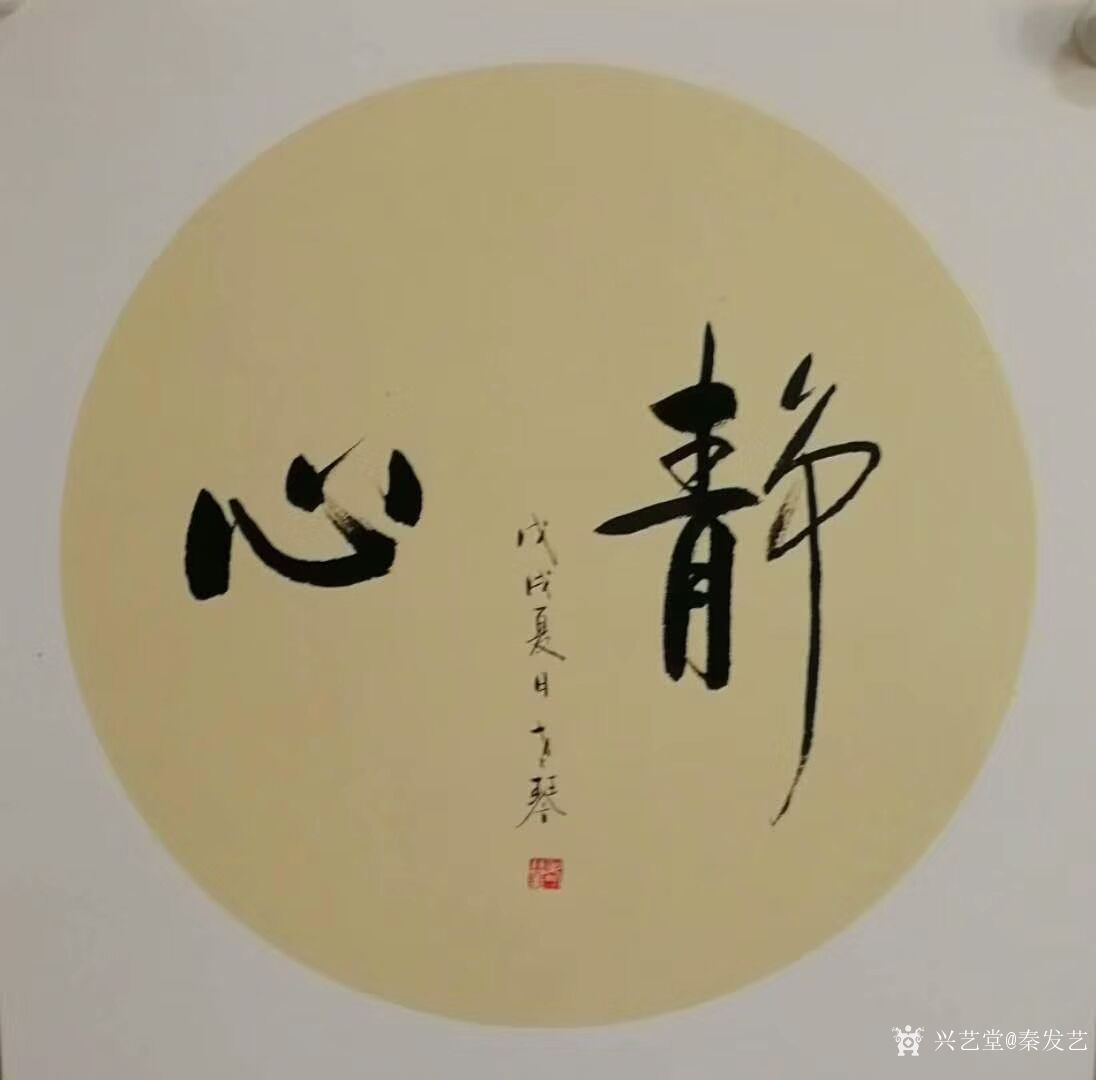 静心
戊戌夏日
琴
兴艺堂@秦发艺